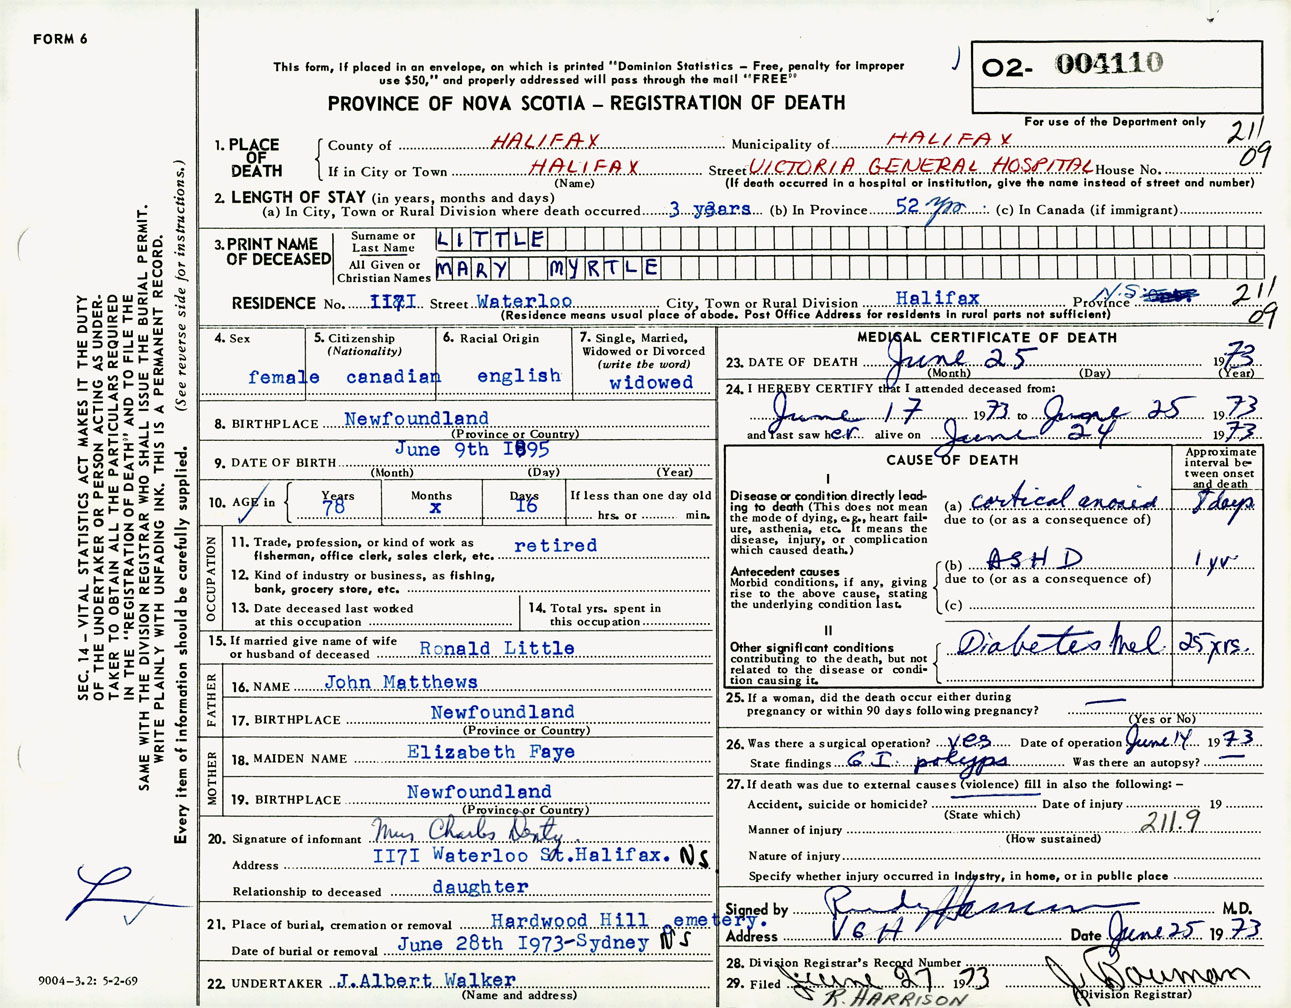 FORM 6
This form, if placed in an envelope, on which is printed "Dominion Statistics – Free, penalty for improper
use $50," and properly addressed will pass through the mail "FREE"
PROVINCE OF NOVA SCOTIA – REGISTRATION OF DEATH
02- 004110
For use of the Department only
211
09
1. PLACE OF DEATH
County of HALIFAX Municipality of HALIFAX
If in City or Town HALIFAX Street VICTORIA GENERAL HOSPITAL House No.
(Name) (If death occurred in a hospital or institution, give the name instead of street and number)
2. LENGTH OF STAY (in years, months and days)
(a) In City, Town or Rural Division where death occurred 3 years (b) In Province 52 yrs (c) In Canada (if immigrant)
3. PRINT NAME OF DECEASED
Surname or Last Name LITTLE
All Given or Christian Names MARY MYRTLE
RESIDENCE No. 1171 Street Waterloo City, Town or Rural Division Halifax Province N.S.
(Residence means usual place of abode. Post Office Address for residents in rural parts not sufficient)
211
09
4. Sex female
5. Citizenship (Nationality) canadian
6. Racial Origin english
7. Single, Married, Widowed or Divorced (write the word) widowed
8. BIRTHPLACE Newfoundland
(Province or Country)
9. DATE OF BIRTH June 9th 1895
(Month) (Day) (Year)
10. AGE in Years 78 Months x Days 16 If less than one day old hrs. or min.
OCCUPATION
11. Trade, profession, or kind of work as fisherman, office clerk, sales clerk, etc. retired
12. Kind of industry or business, as fishing, bank, grocery store, etc.
13. Date deceased last worked at this occupation
14. Total yrs. spent in this occupation
15. If married give name of wife or husband of deceased Ronald Little
FATHER
16. NAME John Matthews
17. BIRTHPLACE Newfoundland
(Province or Country)
MOTHER
18. MAIDEN NAME Elizabeth Faye
19. BIRTHPLACE Newfoundland
(Province or Country)
20. Signature of informant Mrs Charles
Address 1171 Waterloo St. Halifax. NS
Relationship to deceased daughter
21. Place of burial, cremation or removal Hardwood Hill emetery.
Date of burial or removal June 28th 1973-Sydney NS
22. UNDERTAKER J.Albert Walker
(Name and address)
MEDICAL CERTIFICATE OF DEATH
23. DATE OF DEATH June 25 1973
(Month) (Day) (Year)
24. I HEREBY CERTIFY that I attended deceased from:
June 17 1973 to June 25 1973
and last saw her alive on June 24 1973
CAUSE OF DEATH
Approximate interval between onset and death
I
Disease or condition directly leading to death (This does not mean the mode of dying, e.g., heart failure, asthenia, etc. It means the disease, injury, or complication which caused death.)
(a) cortical anoxia 8 days
due to (or as a consequence of)
Antecedent causes
Morbid conditions, if any, giving rise to the above cause, stating the underlying condition last.
(b) ASHD 1 yr
due to (or as a consequence of)
(c)
II
Other significant conditions contributing to the death, but not related to the disease or condition causing it.
Diabetes Mel. 25 yrs.
25. If a woman, did the death occur either during pregnancy or within 90 days following pregnancy? —
(Yes or No)
26. Was there a surgical operation? yes Date of operation June 14 1973
State findings G.I. polyps Was there an autopsy? —
27. If death was due to external causes (violence) fill in also the following: –
Accident, suicide or homicide? Date of injury 19
(State which)
Manner of injury 211.9
(How sustained)
Nature of injury
Specify whether injury occurred in industry, in home, or in public place
Signed by M.D.
Address VGH Date June 25 1973
28. Division Registrar's Record Number
29. Filed June 27 1973 J. Bauman
R. HARRISON (Division Registrar)
SEC. 14 – VITAL STATISTICS ACT MAKES IT THE DUTY
OF THE UNDERTAKER OR PERSON ACTING AS UNDER-
TAKER TO OBTAIN ALL THE PARTICULARS REQUIRED
IN THE "REGISTRATION OF DEATH" AND TO FILE THE
SAME WITH THE DIVISION REGISTRAR WHO SHALL ISSUE THE BURIAL PERMIT.
WRITE PLAINLY WITH UNFADING INK. THIS IS A PERMANENT RECORD.
Every item of information should be carefully supplied. (See reverse side for instructions.)
9004-3.2: 5-2-69